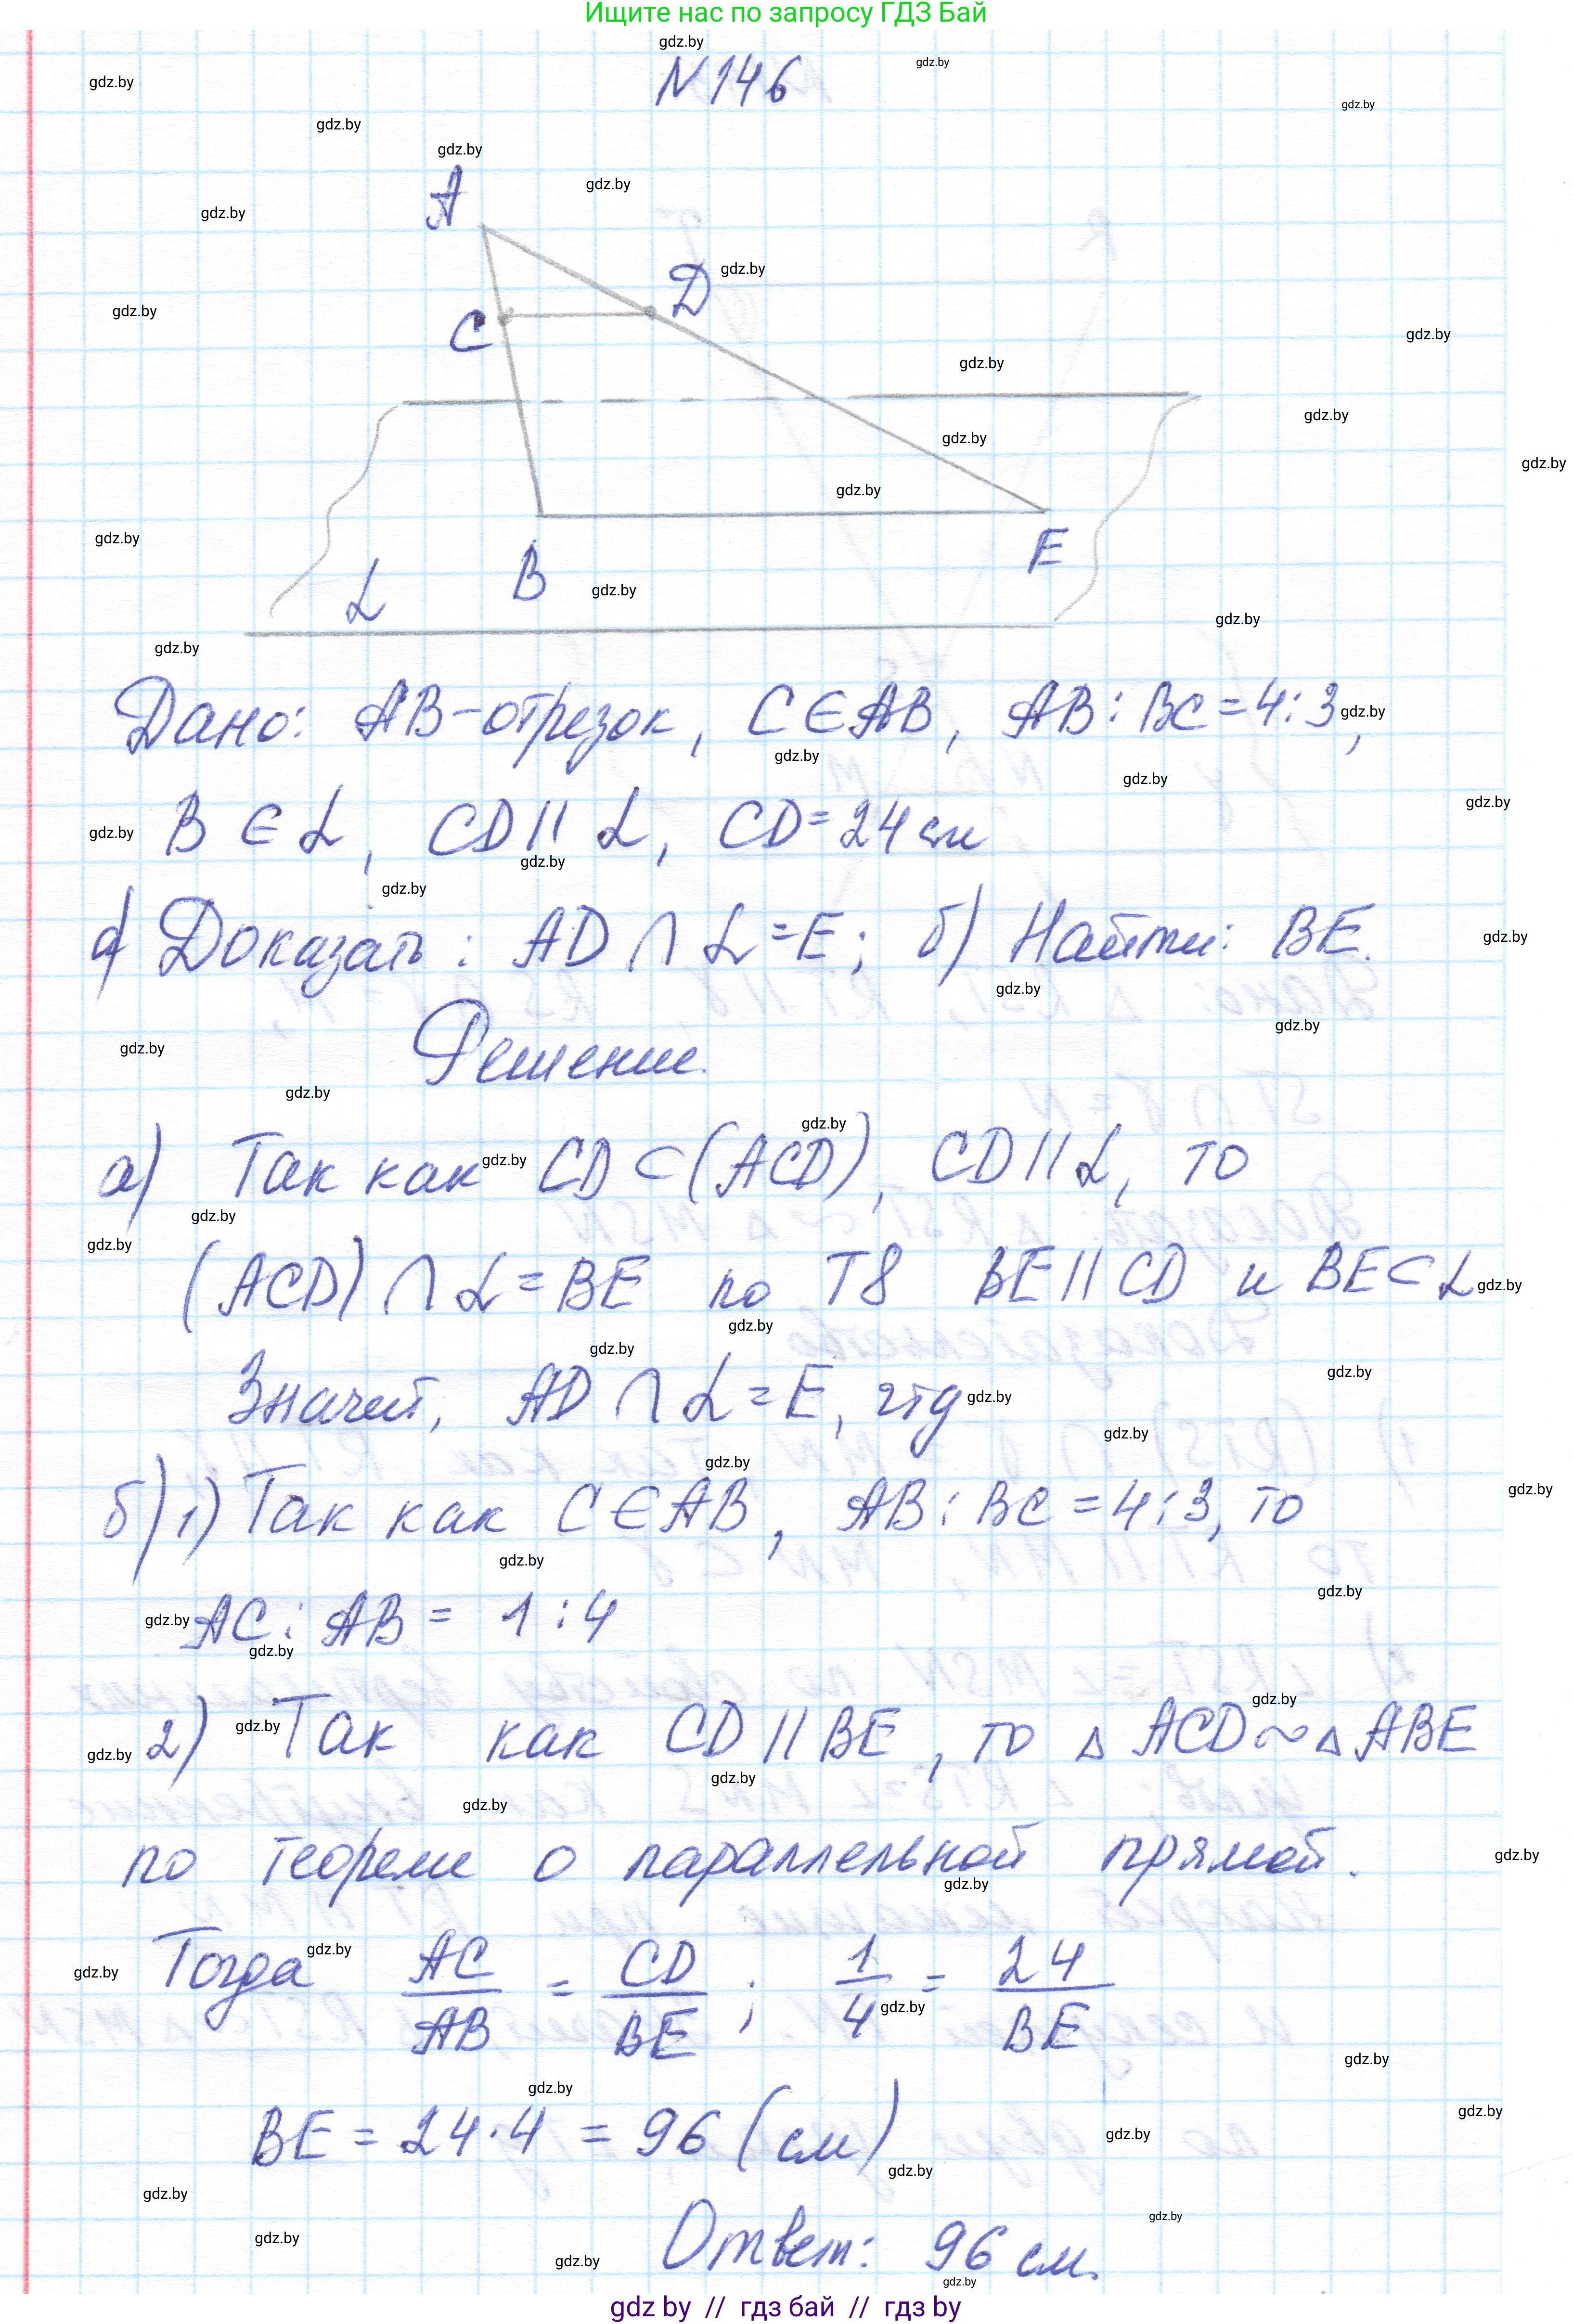 Ищите нас по запросу ГДЗ Бай
N 146
A
D
C
B
E
α
Дано: AB-отрезок, C∈AB, AB:BC=4:3,
B∈α, CD||α, CD=24 см
а) Доказать: AD∩α=E; б) Найти: BE.
Решение.
а) Так как CD⊂(ACD), CD||α, то
(ACD)∩α=BE по Т8 BE||CD и BE⊂α
Значит, AD∩α=E, чтд
б) 1) Так как C∈AB, AB:BC=4:3, то
AC:AB= 1:4
2) Так как CD||BE, то △ACD~△ABE
по теореме о параллельной прямой.
Тогда AC/AB = CD/BE; 1/4 = 24/BE
BE = 24·4 = 96 (см)
Ответ: 96 см.
gdz by // гдз бай // гдз by